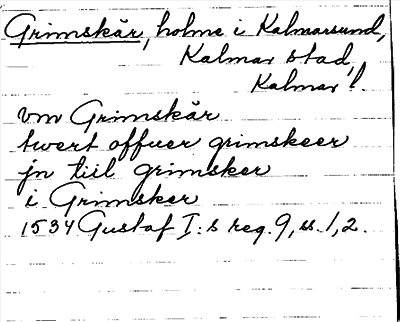 Grimskär, holme i Kalmarsund,
Kalmar stad,
Kalmar l.
vm Grimskär
twert offuer grimskeer
jn tiil grimsker
i Grimsker
1534 Gustaf I:s reg. 9, ss. 1, 2.